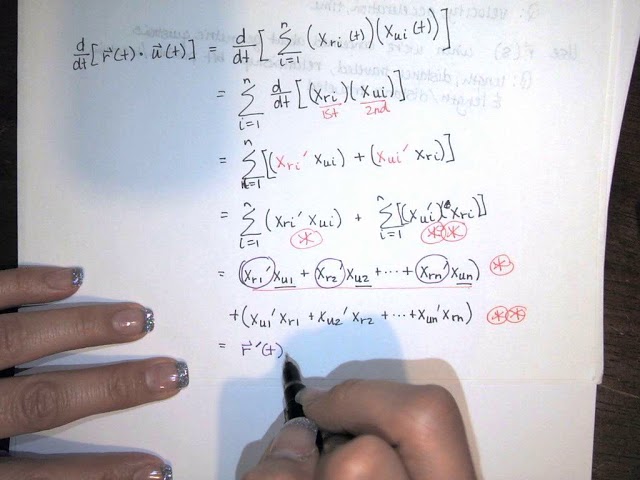 d/dt [r⃗(t) · u⃗(t)] = d/dt [ Σ_{i=1}^{n} (x_{ri}(t))(x_{ui}(t)) ]
= Σ_{i=1}^{n} d/dt [(x_{ri})(x_{ui})]
1st 2nd
= Σ_{i=1}^{n} [(x_{ri}' x_{ui}) + (x_{ui}' x_{ri})]
= Σ_{i=1}^{n} (x_{ri}' x_{ui}) + Σ_{i=1}^{n} [(x_{ui}')(x_{ri})]
* **
= (x_{r1}' x_{u1} + x_{r2}' x_{u2} + ··· + x_{rn}' x_{un}) *
+ (x_{u1}' x_{r1} + x_{u2}' x_{r2} + ··· + x_{un}' x_{rn}) **
= r⃗'(t)